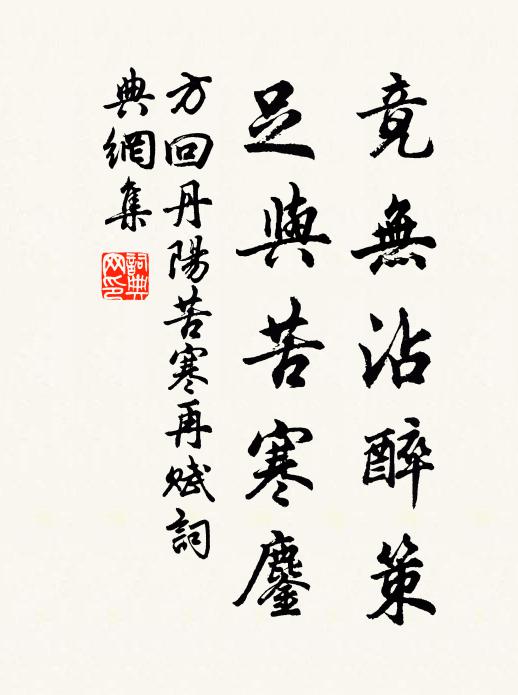 竟無沾醉策
足與苦寒鏖
方回丹陽苦寒再賦詞
典網集
詞典網印